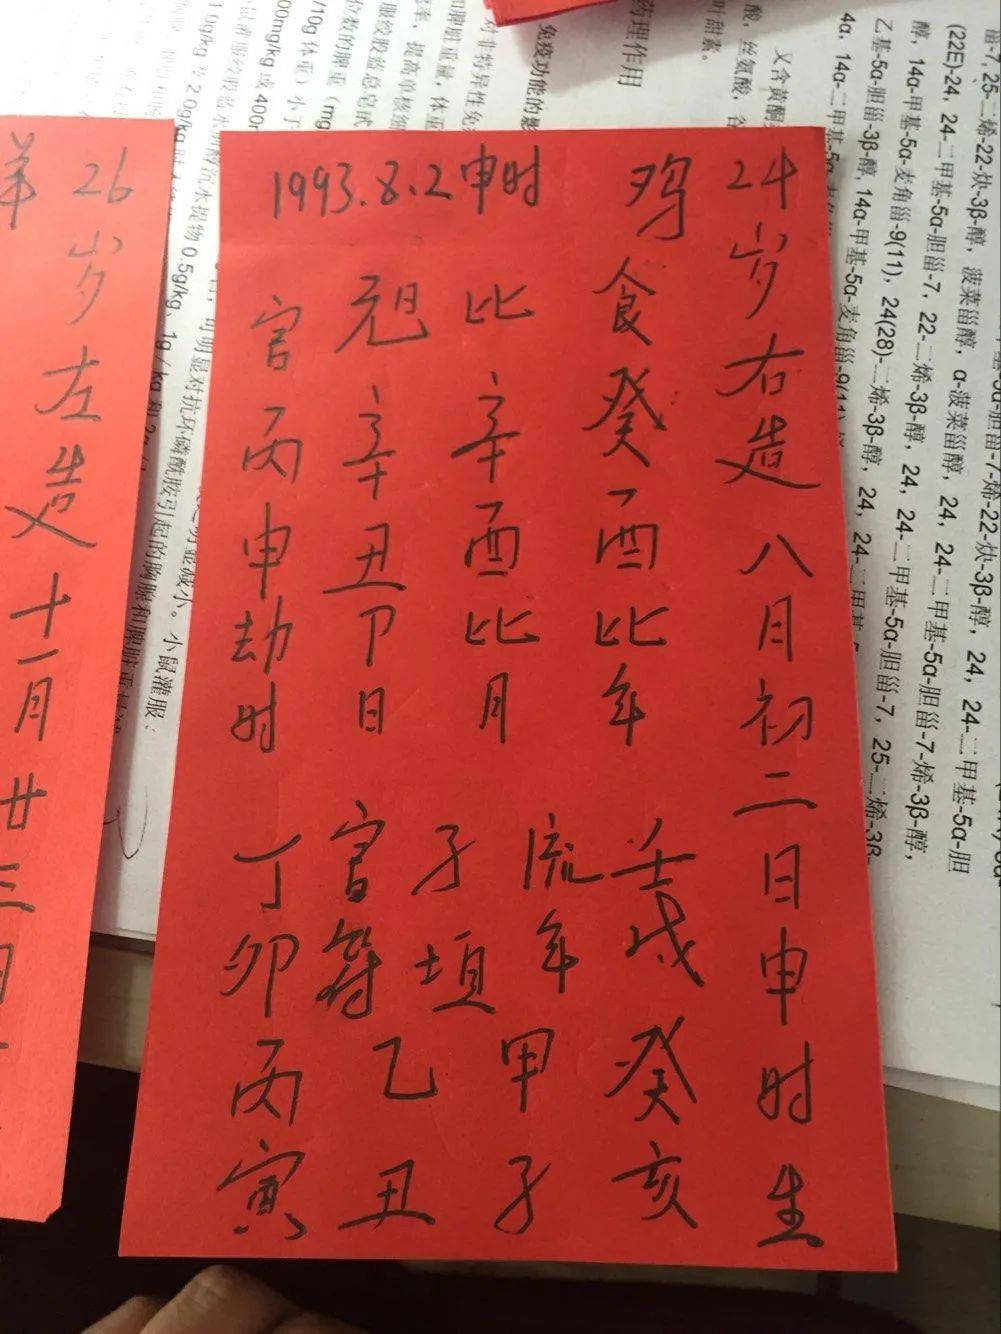 1993.8.2申时
24岁右造八月初二日申时生
鸡
食癸酉比年
比辛酉比月
辛丑卩日
官丙申劫时
壬戌癸亥
流年甲子
子垣乙丑
官符
丁卯丙寅
26岁左造十一月廿三日
羊
甾-7, 25-二烯-22-炔-3β-醇，菠菜甾醇，α-菠菜甾醇，24, 24-二甲基-5α-胆
(22E)-24, 24-二甲基-5α-胆甾-7, 22-二烯-3β-醇，24, 24-二甲基-5α-胆甾-7-烯-3β-醇，
醇，14α-甲基-5α-麦角甾-9(11), 24(28)-二烯-3β-醇，24, 24-二甲基-5α-胆甾-7，25-二烯-3β-
乙基-5α-胆甾-3β-醇, 14α-甲基-5α-麦角甾-9(11)
4α, 14α-二甲基-5α-
又含黄酮
酸，丝氨酸，谷
叶甜素。
药理作用
免疫功能的影
对非特异性免